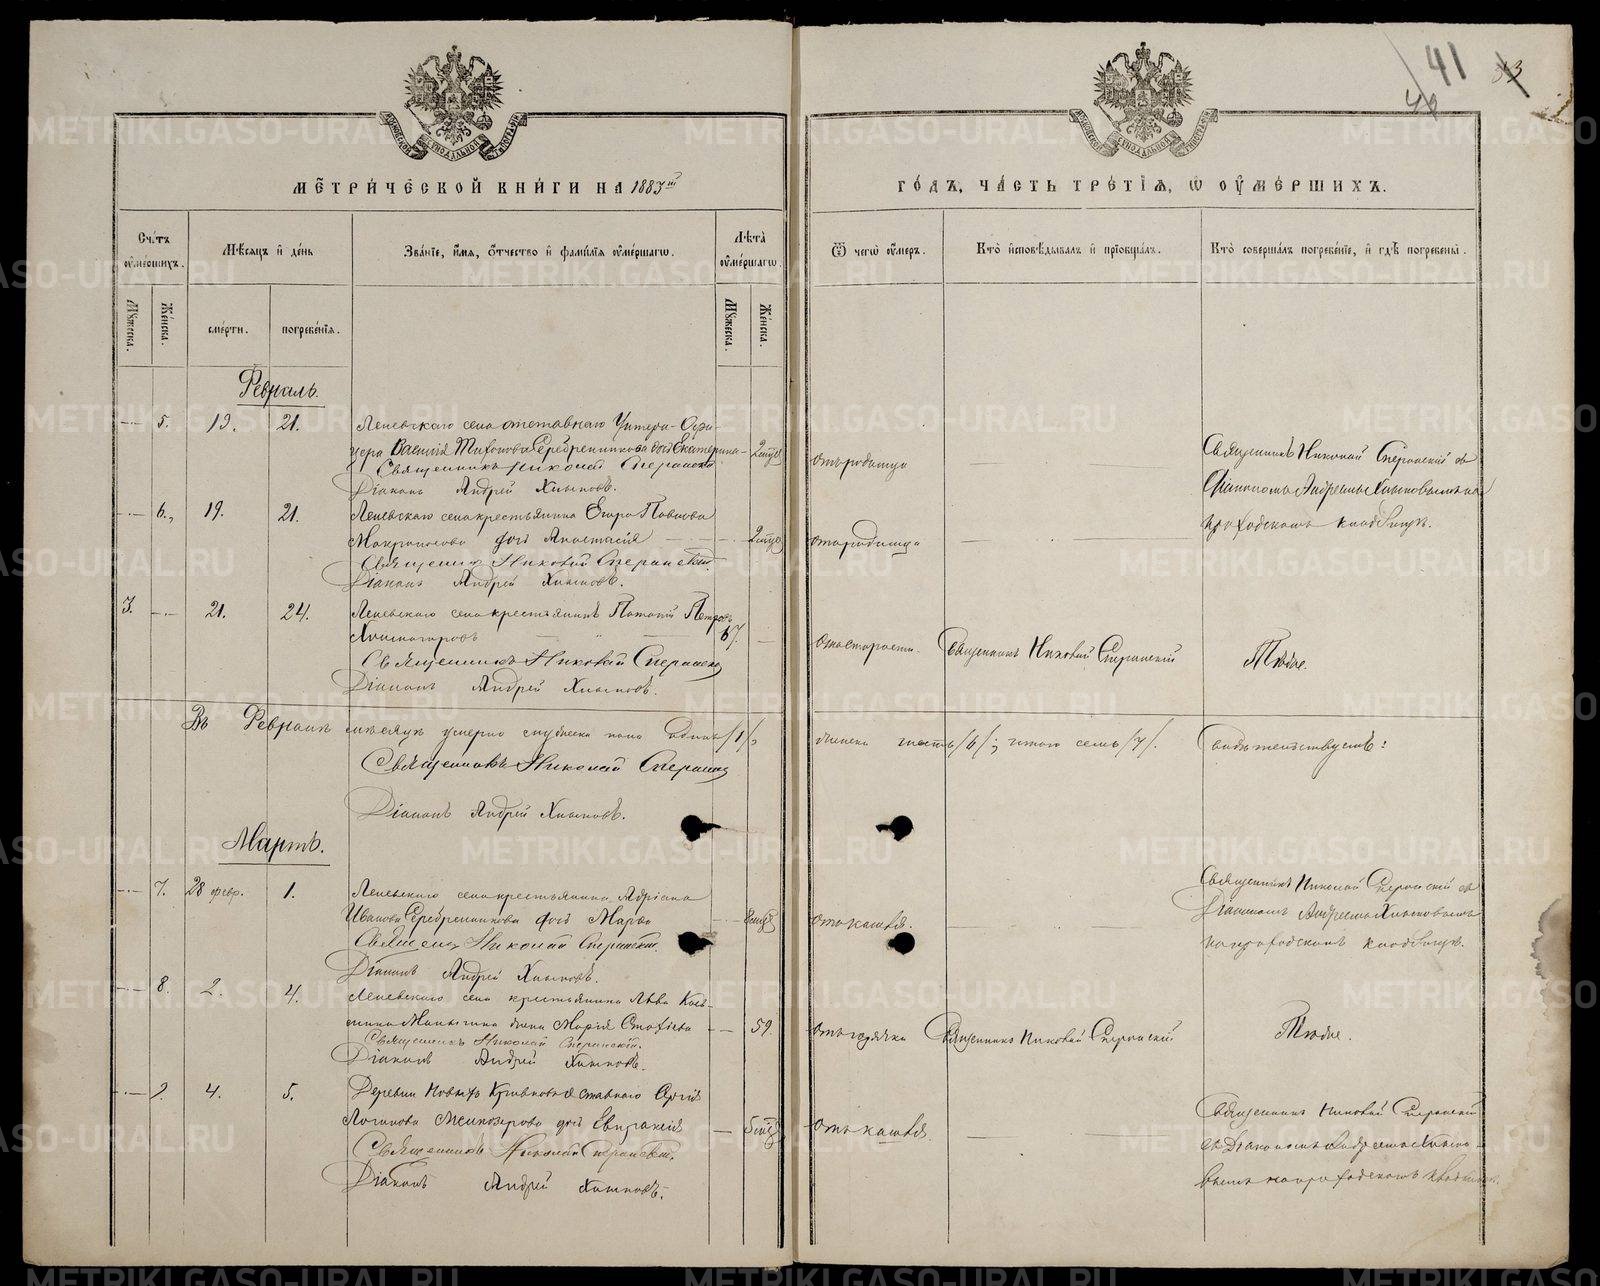 41
40
53
МОСКОВСКОЙ СѴНОДАЛЬНОЙ ТИПОГРАФІИ
МОСКОВСКОЙ СѴНОДАЛЬНОЙ ТИПОГРАФІИ
МЕТРИЧЕСКОЙ КНИГИ НА 1883й
ГОДЪ, ЧАСТЬ ТРЕТІѦ, Ѽ ОУМЕРШИХЪ.
Счетъ оумершихъ.
Мѣсяцъ и день
Званіе, имя, отчество и фамилія оумершагѡ.
Лѣта оумершагѡ.
Ѿ чегѡ оумеръ.
Кто исповѣдывалъ и пріобщалъ.
Кто совершалъ погребеніе, и гдѣ погребены.
Мужеска.
Женска.
смерти.
погребенія.
Мужеска.
Женска.
Февраль.
5. 19. 21. Леневскаго села отставнаго Унтеръ-Офи-
цера Василія Тихонова Серебренникова дочь Екатерина
Священникъ Николай Сперанскій
Діаконъ Андрей Хлыновъ.
отъ родимца
Священникъ Николай Сперанскій съ
Діакономъ Андреемъ Хлыновымъ на
приходскомъ кладбищѣ.
6. 19. 21. Леневскаго села крестьянина Егора Павлова
дочь Анастасія
Священникъ Николай Сперанскій.
Діаконъ Андрей Хлыновъ.
отъ родимца
3. 21. 24. Леневскаго села крестьянинъ Потапій Петровъ
67.
Священникъ Николай Сперанскій
Діаконъ Андрей Хлыновъ.
отъ старости. Священникъ Николай Сперанскій
Тѣже.
Въ Февралѣ мѣсяцѣ умерло мужеска пола одинъ /1/,
женска шесть /6/; итого семь /7/. Свидѣтельствуемъ:
Священникъ Николай Сперанскій
Діаконъ Андрей Хлыновъ.
Мартъ.
7. 28 февр. 1. Леневскаго села крестьянина Адріана
Иванова Серебренникова дочь Марѳа
Священникъ Николай Сперанскій.
Діаконъ Андрей Хлыновъ.
отъ кашля.
Священникъ Николай Сперанскій съ
Діакономъ Андреемъ Хлыновымъ
на приходскомъ кладбищѣ.
8. 2. 4. Леневскаго села крестьянина Льва Кось-
мина жена Марія 59.
Священникъ Николай Сперанскій.
Діаконъ Андрей Хлыновъ.
отъ горячки Священникъ Николай Сперанскій
Тѣже.
9. 4. 5. Деревни Новыхъ Сергія
Логинова дочь Евпраксія
Священникъ Николай Сперанскій.
Діаконъ Андрей Хлыновъ.
отъ кашля.
Священникъ Николай Сперанскій
съ Діакономъ Андреемъ Хлыно-
вымъ на приходскомъ кладбищѣ.
METRIKI.GASO-URAL.RU